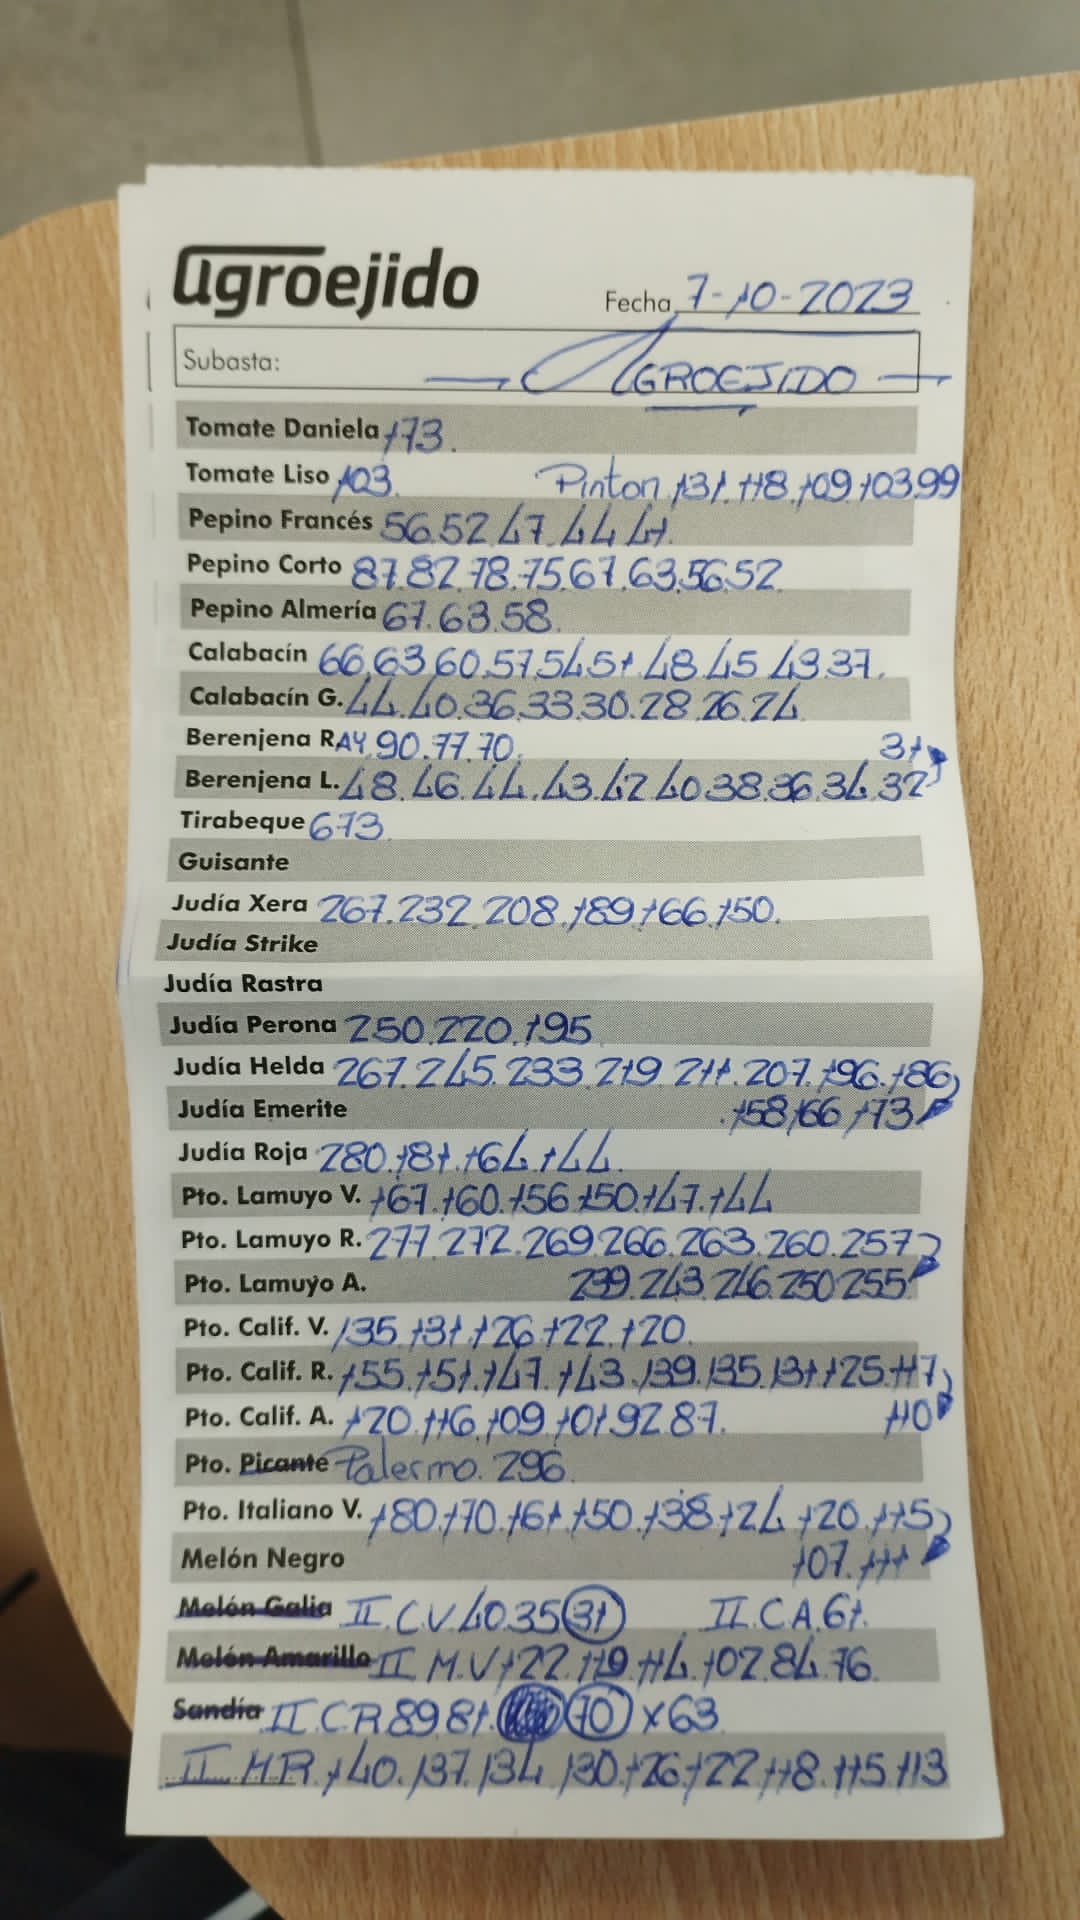 agroejido
Fecha 7-10-2023
Subasta: AGROEJIDO
Tomate Daniela 173.
Tomate Liso 103. Pinton 131.118.109.103.99
Pepino Francés 56.52.47.44.41.
Pepino Corto 87.82.78.75.67.63.56.52
Pepino Almería 67.63.58.
Calabacín 66.63.60.57.54.51.48.45.43.37.
Calabacín G. 44.40.36.33.30.28.26.24
Berenjena R. AY.90.77.70. 31
Berenjena L. 48.46.44.43.42.40.38.36.34.32
Tirabeque 673.
Guisante
Judía Xera 267.232.208.189.166.150.
Judía Strike
Judía Rastra
Judía Perona 250.220.195
Judía Helda 267.245.233.219.211.207.196.186
Judía Emerite 158.166.173
Judía Roja 280.181.164.144.
Pto. Lamuyo V. 167.160.156.150.147.144
Pto. Lamuyo R. 277.272.269.266.263.260.257
Pto. Lamuyo A. 239.243.246.250.255
Pto. Calif. V. 135.131.126.122.120.
Pto. Calif. R. 155.151.147.143.139.135.131.125.117
Pto. Calif. A. 120.116.109.101.92.87. 110
Pto. Picante Palermo. 296.
Pto. Italiano V. 180.170.161.150.138.124.120.115
Melón Negro 107.111
Melón Galia II.C.V.40.35.31 II.C.A.61.
Melón Amarillo II M.V.122.119.114.102.84.76.
Sandía II.C.R.89.81. 70 x 63
II.M.R.140.137.134.130.126.122.118.115.113